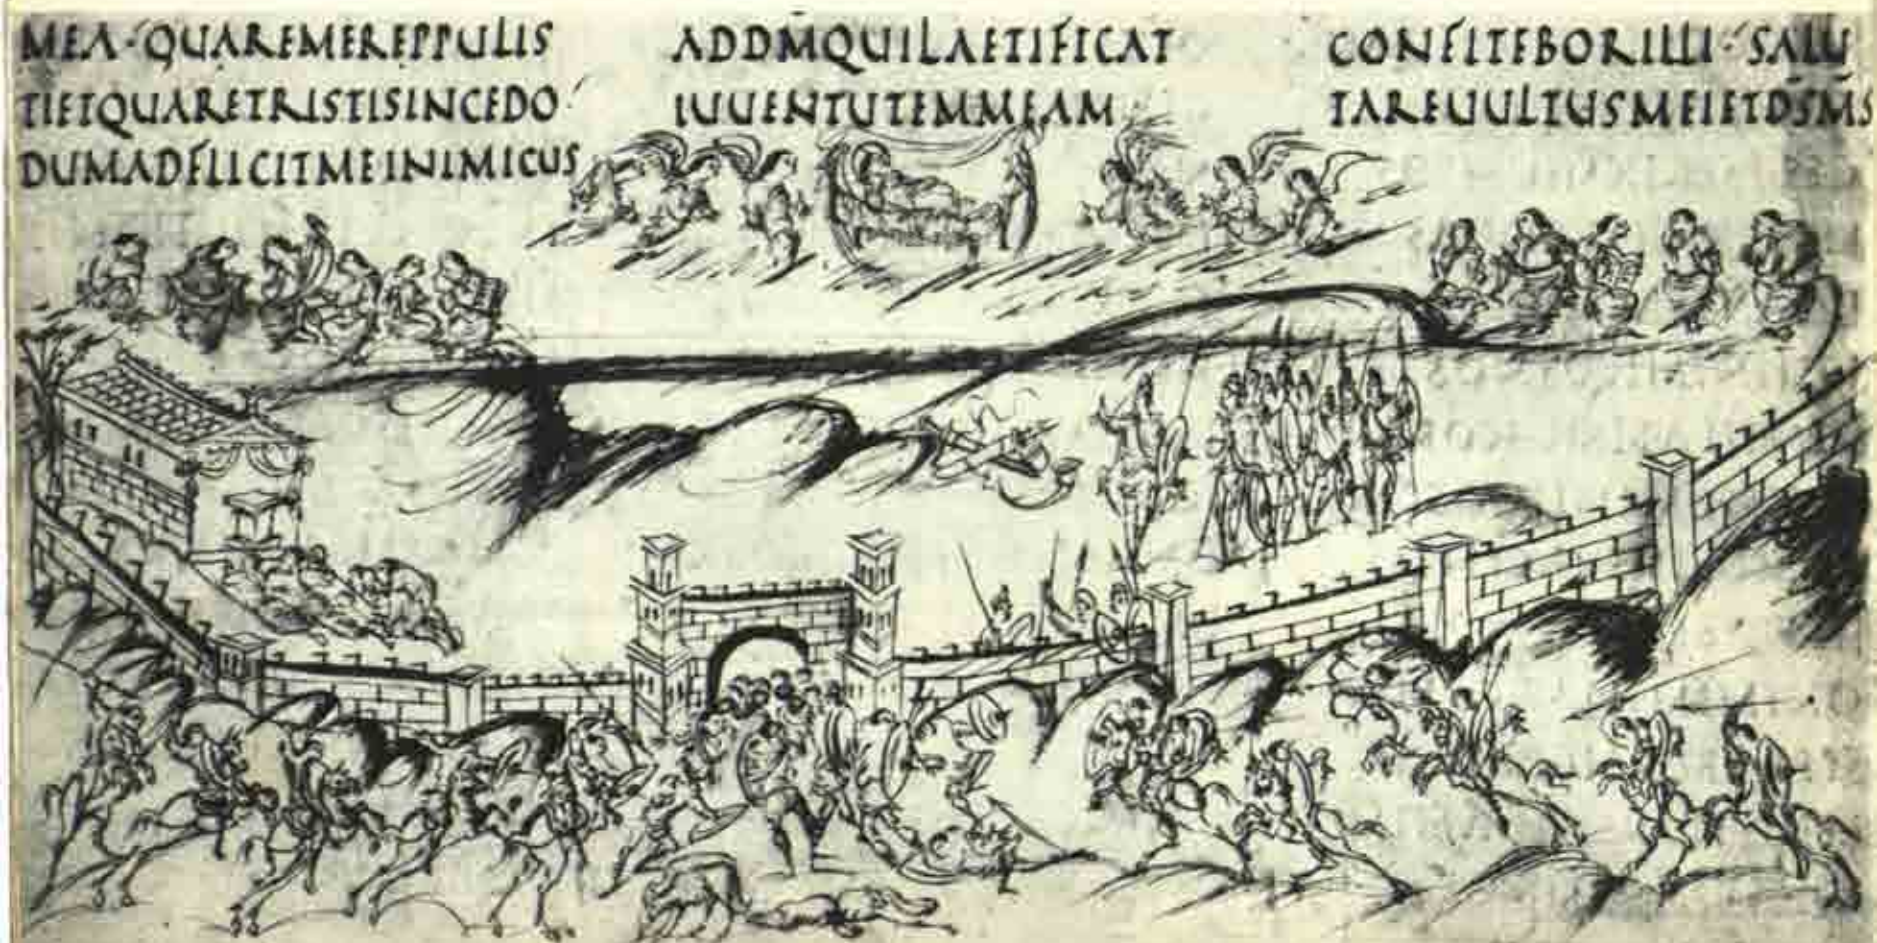 MEA·QUAREMEREPPULIS
TIETQUARETRISTISINCEDO
DUMADFLICITMEINIMICUS
ADDM̅QUILAETIFICAT
IUUENTUTEMMEAM
CONFITEBORILLI·SALU
TAREUULTUSMEIETD̅S̅M̅S